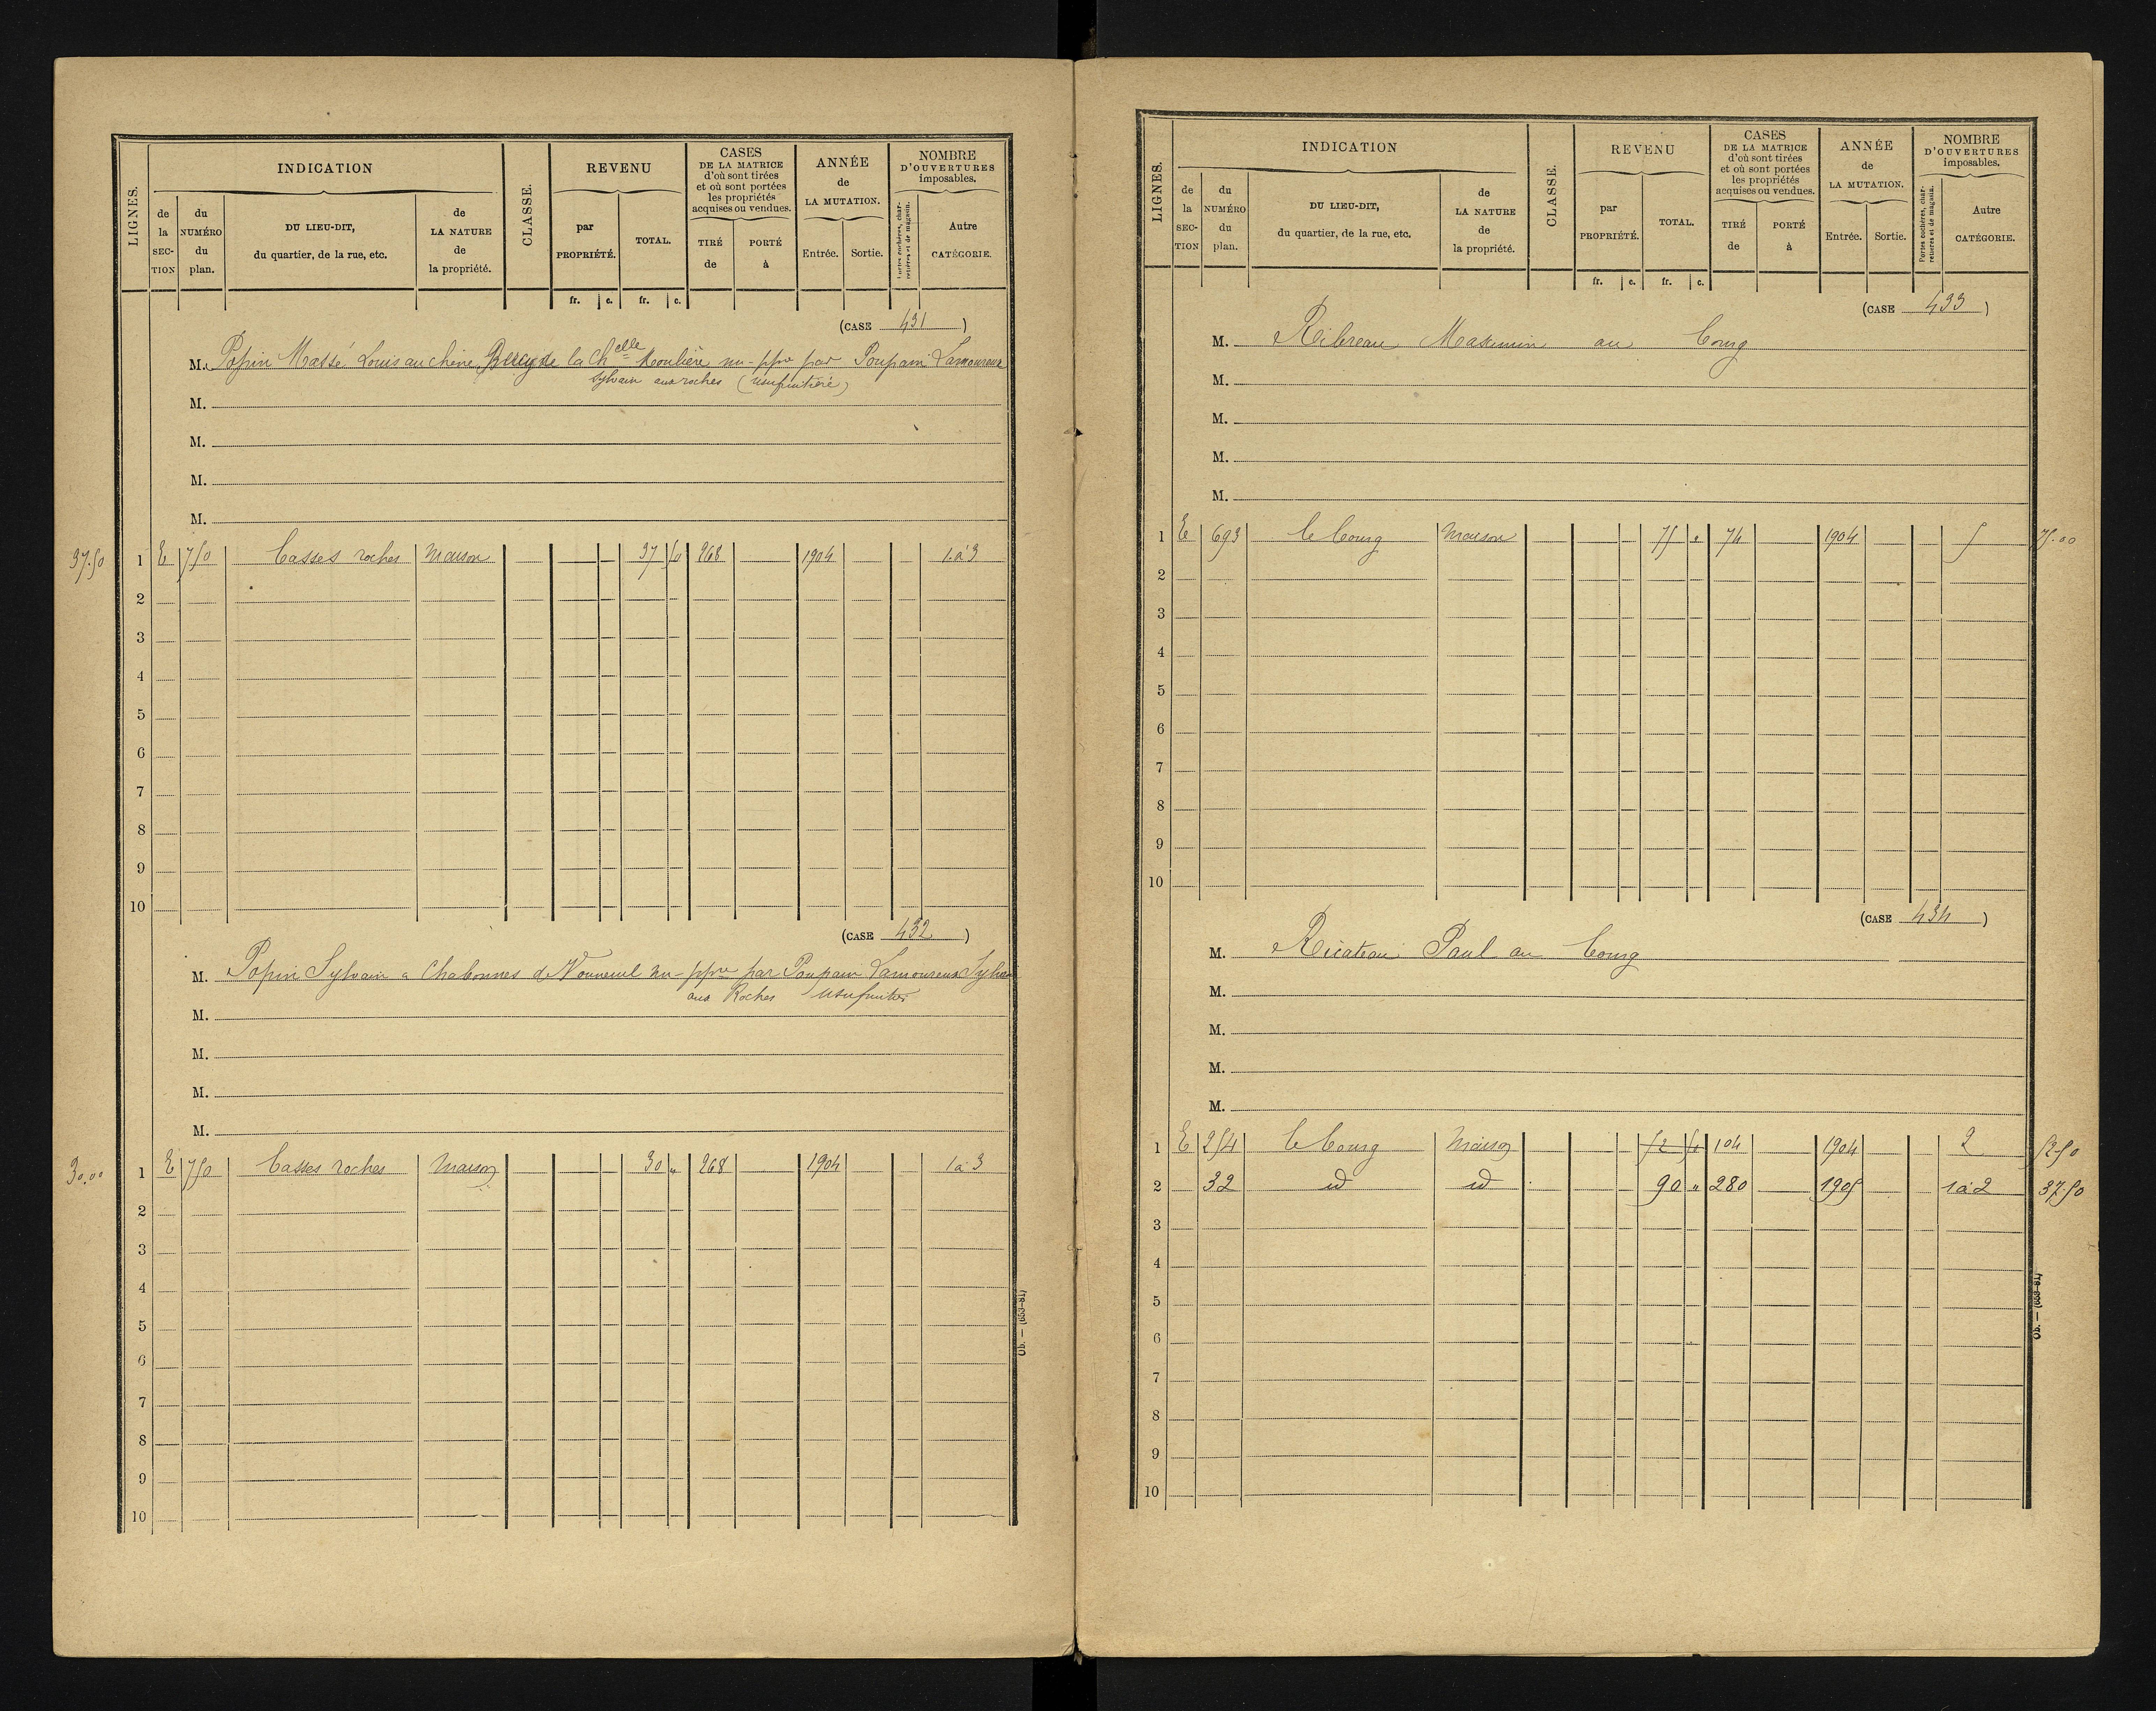 LIGNES.
INDICATION
de la SEC-TION
du NUMÉRO du plan.
DU LIEU-DIT, du quartier, de la rue, etc.
de LA NATURE de la propriété.
CLASSE.
REVENU
par PROPRIÉTÉ.
TOTAL.
CASES DE LA MATRICE d'où sont tirées et où sont portées les propriétés acquises ou vendues.
TIRÉ de
PORTÉ à
ANNÉE de LA MUTATION.
Entrée.
Sortie.
NOMBRE D'OUVERTURES imposables.
Portes cochères, charretières et de magasin.
Autre CATÉGORIE.
fr. c. fr. c.
(CASE 431)
M. Popin Massé Louis au chêne de la Chelle Moulière nu-ppre par Poupain Lamoureux
Sylvain aux roches (usufruitière)
M.
M.
M.
M.
37.50 1 E 750 Casses roches Maison 37 50 268 1904 1 à 3
2
3
4
5
6
7
8
9
10
(CASE 432)
M. Popin Sylvain à Chabonnes de Vouneuil nu-ppre par Poupain Lamoureux Sylvain
aux Roches usufruitier
M.
M.
M.
M.
30.00 1 E 750 Casses roches Maison 30 " 268 1904 1 à 3
2
3
4
5
6
7
8
9
10
Ob. — (653-81)
LIGNES.
INDICATION
de la SEC-TION
du NUMÉRO du plan.
DU LIEU-DIT, du quartier, de la rue, etc.
de LA NATURE de la propriété.
CLASSE.
REVENU
par PROPRIÉTÉ.
TOTAL.
CASES DE LA MATRICE d'où sont tirées et où sont portées les propriétés acquises ou vendues.
TIRÉ de
PORTÉ à
ANNÉE de LA MUTATION.
Entrée.
Sortie.
NOMBRE D'OUVERTURES imposables.
Portes cochères, charretières et de magasin.
Autre CATÉGORIE.
fr. c. fr. c.
(CASE 433)
M. Ribreau Maximin au bourg
M.
M.
M.
M.
1 E 693 le bourg Maison 75 " 74 1904 5 75.00
2
3
4
5
6
7
8
9
10
(CASE 434)
M. Ricateau Paul au bourg
M.
M.
M.
M.
1 E 254 le bourg Maison 52 50 104 1904 2 52.50
2 32 id id 90 " 280 1905 1 à 2 37.50
3
4
5
6
7
8
9
10
Ob. — (653-81)